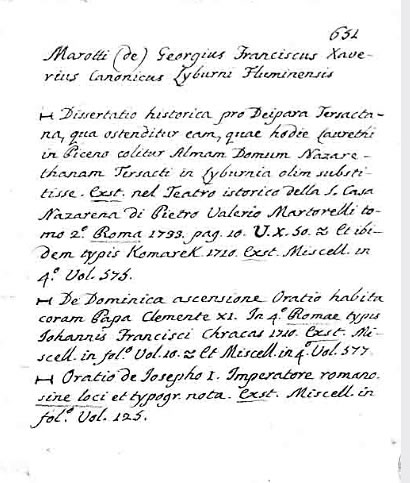 651
Marotti (de) Georgius Franciscus Xave-
rius Canonicus Lyburni Fluminensis
H Dissertatio historica pro Deipara Tersacta-
na, qua ostenditur eam, quae hodie Laurethi
in Piceno colitur Almam Domum Nazare-
thanam Tersacti in Lyburnia olim substi-
tisse. Exst. nel Teatro istorico della S. Casa
Nazarena di Pietro Valerio Martorelli to-
mo 2.º Roma 1733. pag. 10. V. X. 50. & Et ibi-
dem typis Komarek 1710. Exst. Miscell. in
4.º Vol. 575.
H De Dominica ascensione Oratio habita
coram Papa Clemente XI. In 4.º Romae typis
Iohannis Francisci Chracas 1710. Exst. Mi-
scell. in fol.º Vol. 10. & Et Miscell. in 4.º Vol. 577.
H Oratio de Iosepho I. Imperatore romano.
sine loci et typogr. nota. Exst. Miscell. in
fol.º Vol. 125.